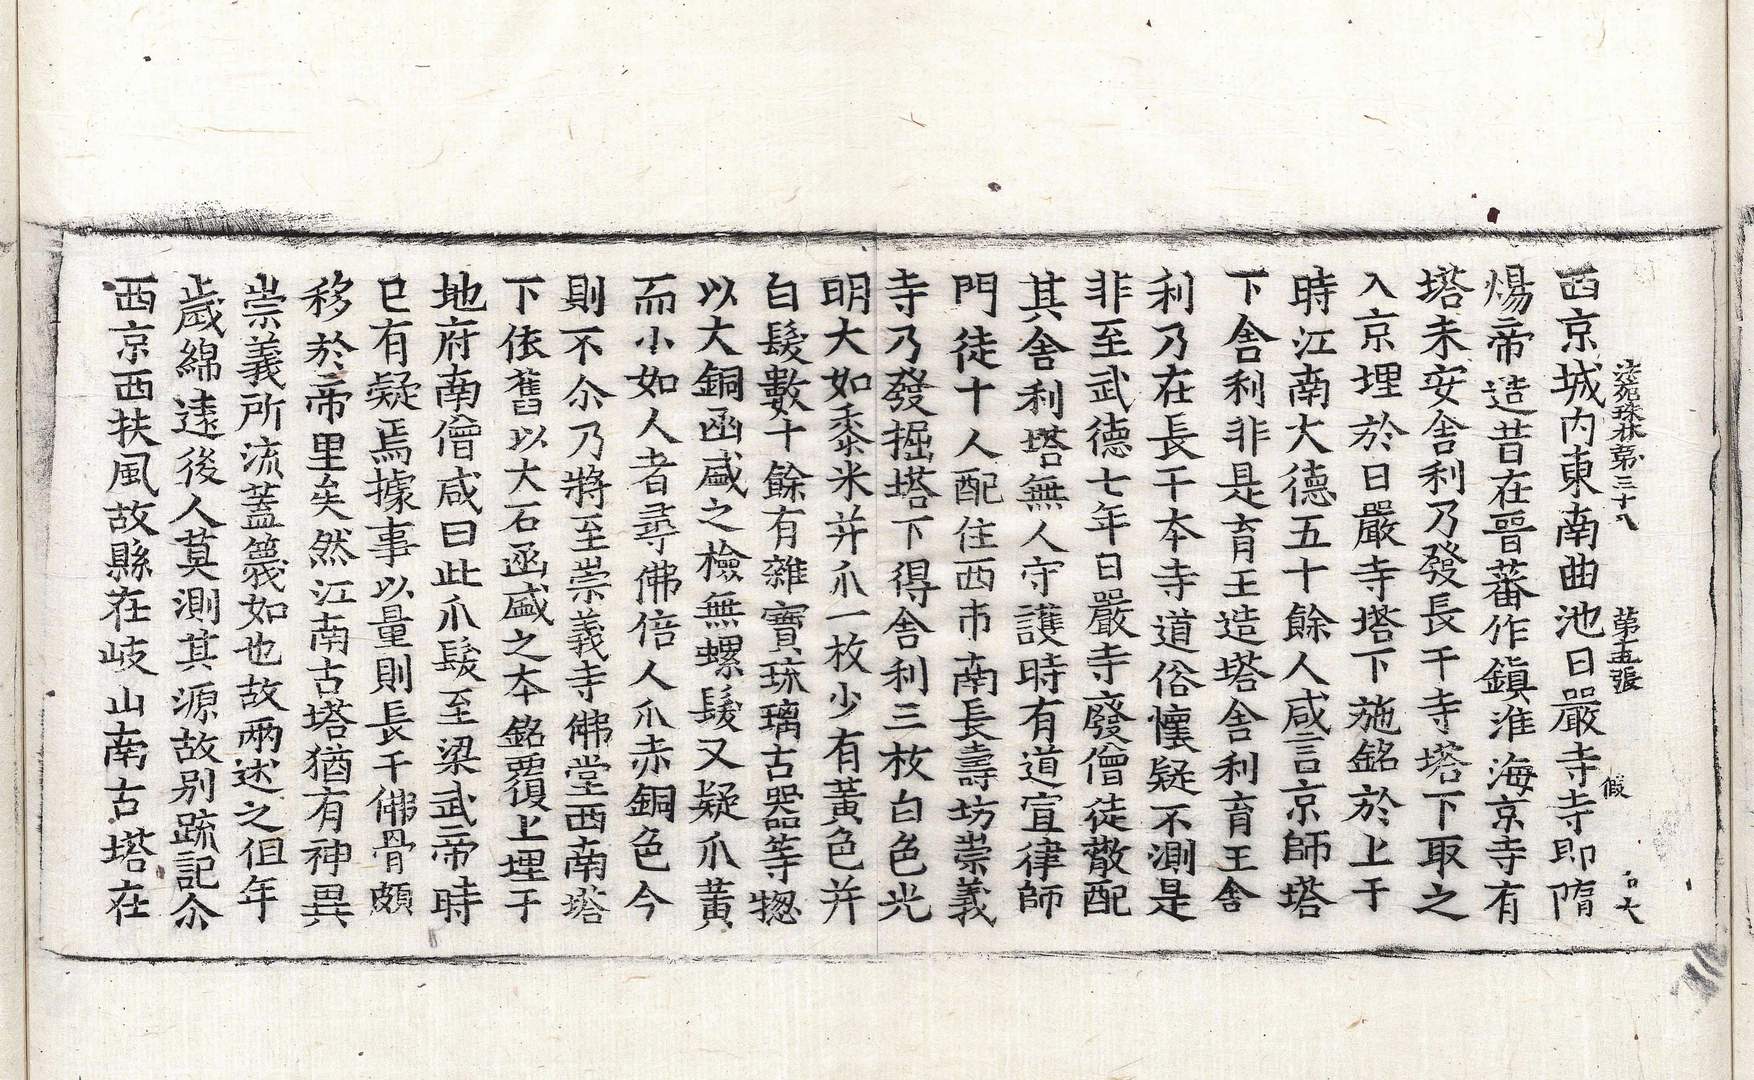 法苑珠林第三十八 第五張 假
西京城內東南曲池日嚴寺寺即隋
煬帝造昔在晉蕃作鎮淮海京寺有
塔未安舍利乃發長干寺塔下取之
入京埋於日嚴寺塔下施銘於上于
時江南大德五十餘人咸言京師塔
下舍利非是育王造塔舍利育王舍
利乃在長干本寺道俗懷疑不測是
非至武德七年日嚴寺廢僧徒散配
其舍利塔無人守護時有道宣律師
門徒十人配住西市南長壽坊崇義
寺乃發掘塔下得舍利三枚白色光
明大如黍米并爪一枚少有黃色并
白髮數十餘有雜寶琉璃古器等惣
以大銅函盛之檢無螺髮又疑爪黃
而小如人者尋佛倍人爪赤銅色今
則不尒乃將至崇義寺佛堂西南塔
下依舊以大石函盛之本銘覆上埋于
地府南僧咸曰此爪髮至梁武帝時
已有疑焉據事以量則長干佛骨頗
移於帝里矣然江南古塔猶有神異
崇義所流蓋篾如也故兩述之但年
歲綿遠後人莫測其源故別疏記尒
西京西扶風故縣在岐山南古塔在